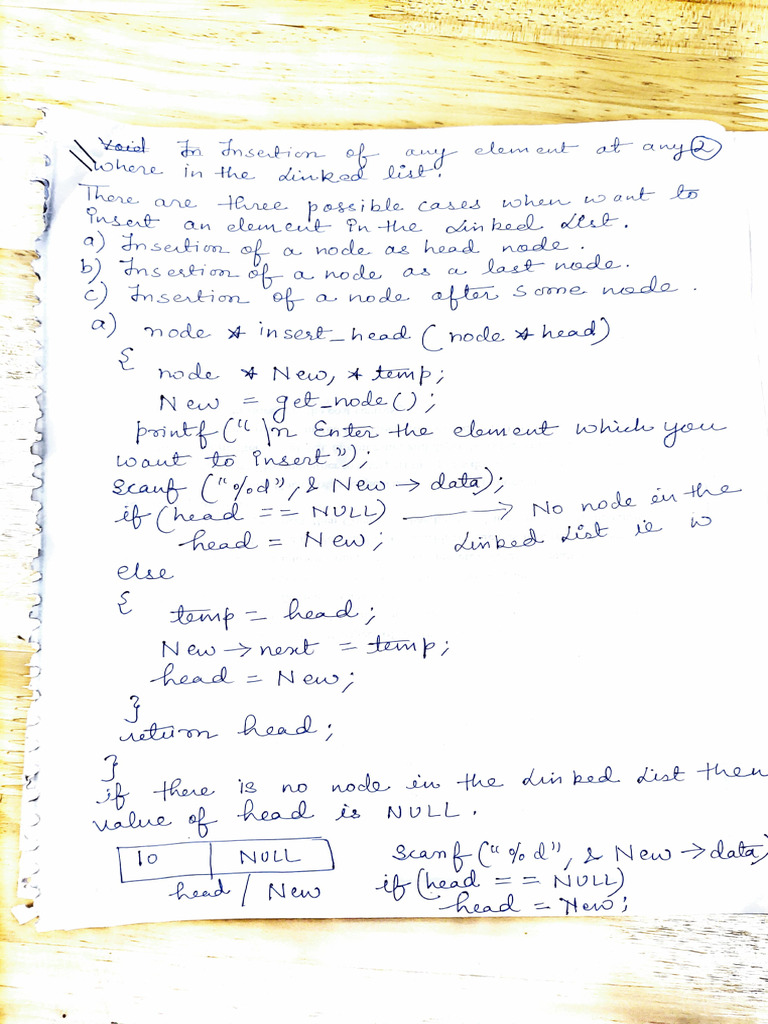 Void In Insertion of any element at any 2
where in the Linked list.
There are three possible cases when want to
insert an element in the Linked List.
a) Insertion of a node as head node.
b) Insertion of a node as a last node.
c) Insertion of a node after some node.
a) node * insert_head (node * head)
{
node * New, * temp;
New = get_node();
printf("\n Enter the element which you
want to insert");
scanf ("%d", & New → data);
if (head == NULL) → No node in the
head = New; Linked List ie
else
{
temp = head;
New → next = temp;
head = New;
}
return head;
}
if there is no node in the Linked List then
value of head is NULL.
10 NULL scanf("%d", & New → data)
head / New if (head == NULL)
head = New;